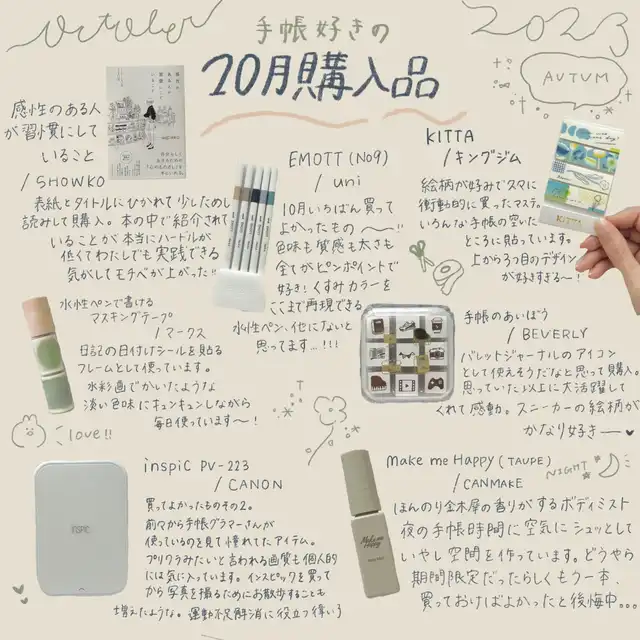 October
2023
手帳好きの
10月購入品
AUTUM
感性のある人
が習慣にして
いること
/ SHOWKO
表紙とタイトルにひかれて少しためし
読みして購入。本の中で紹介されて
いることが本当にハードルが
低くてわたしでも実践できる
気がしてモチベが上がった!!
EMOTT (No9)
/ uni
10月いちばん買って
よかったもの〜!!
色味も質感も太さも
全てがピンポイントで
好き！くすみカラーを
ここまで再現できる
水性ペン、他にないと
思ってます...!!!
KITTA
/ キングジム
絵柄が好みでスマに
衝動的に買ったマステ。
いろんな手帳の空いた
ところに貼っています。
上から3つ目のデザイン
が好きすぎる〜！
KITTA
水性ペンで書ける
マスキングテープ
/ マークス
日記の日付けシールを貼る
フレームとして使っています。
水彩画でかいたような
淡い色味にキュンキュンしながら
毎日使っています〜！
love!!
手帳のあいぼう
/ BEVERLY
バレットジャーナルのアイコン
として使えそうだなと思って購入。
思っていた以上に大活躍して
くれて感動。スニーカーの絵柄が
かなり好き
inspic PV-223
/ CANON
買ってよかったものその2。
前々から手帳グラマーさんが
使っているのを見て憧れてたアイテム。
プリクラみたいと言われる画質も個人的
には気に入っています。インスピックを買って
から写真を撮るためにお散歩することも
増えたような。運動不足解消に役立つ偉いう
iNSPiC
Make me Happy (TAUPE)
/ CANMAKE
NIGHT
ほんのり金木犀の香りがするボディミスト
夜の手帳時間に空気にシュッとして
いやし空間を作っています。どうやら
期間限定だったらしくもう一本、
買っておけばよかったと後悔中...
Make me
Happy